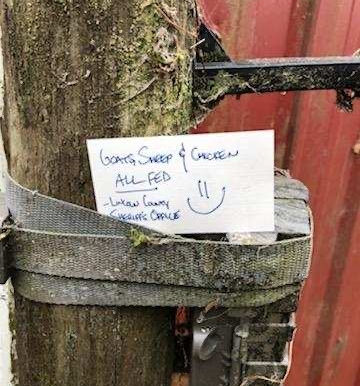 GOATS, SHEEP & CHICKEN
ALL FED
- LINCOLN COUNTY
SHERIFF'S OFFICE